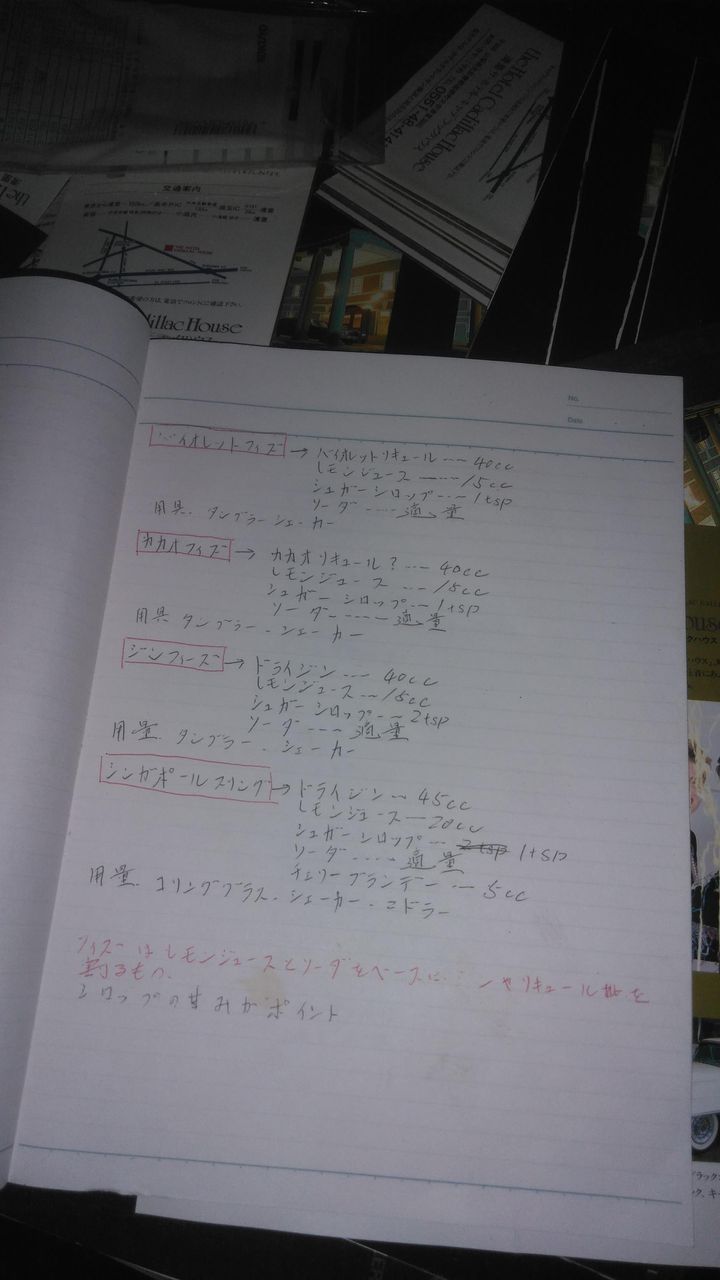 the Hotel Cadillac House
0551-48-414
交通案内
THE HOTEL CADILLAC HOUSE
dillac House
No.
Date
バイオレットフィズ → バイオレットリキュール ---- 40cc
レモンジュース ------ 15cc
シュガーシロップ --- 1tsp
ソーダ ---- 適量
用具. タンブラー シェーカー
カカオフィズ → カカオリキュール? --- 40cc
レモンジュース --- 15cc
シュガーシロップ --- 1tsp
ソーダー ----- 適量
用具 タンブラー . シェーカー
ジンフィーズ → ドライジン --- 40cc
レモンジュース --- 15cc
シュガーシロップ --- 2tsp
ソーダー --- 適量
用量. タンブラー . シェーカー
シンガポールスリング → ドライジン --- 45cc
レモンジュース --- 20cc
シュガーシロップ --- 2tsp 1tsp
ソーダー ---- 適量
チェリーブランデー --- 5cc
用量. コリングラス. シェーカー.
フィズーはレモンジュースとソーダをベースに
リキュール
を
割るもの.
シロップの甘みがポイント